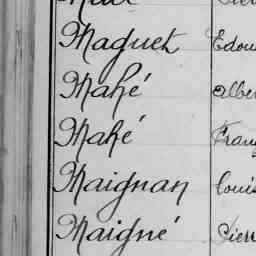 Maguet Edou
Mahé Albe
Mahé Franç
Maignan Louis
Maigné Pierr